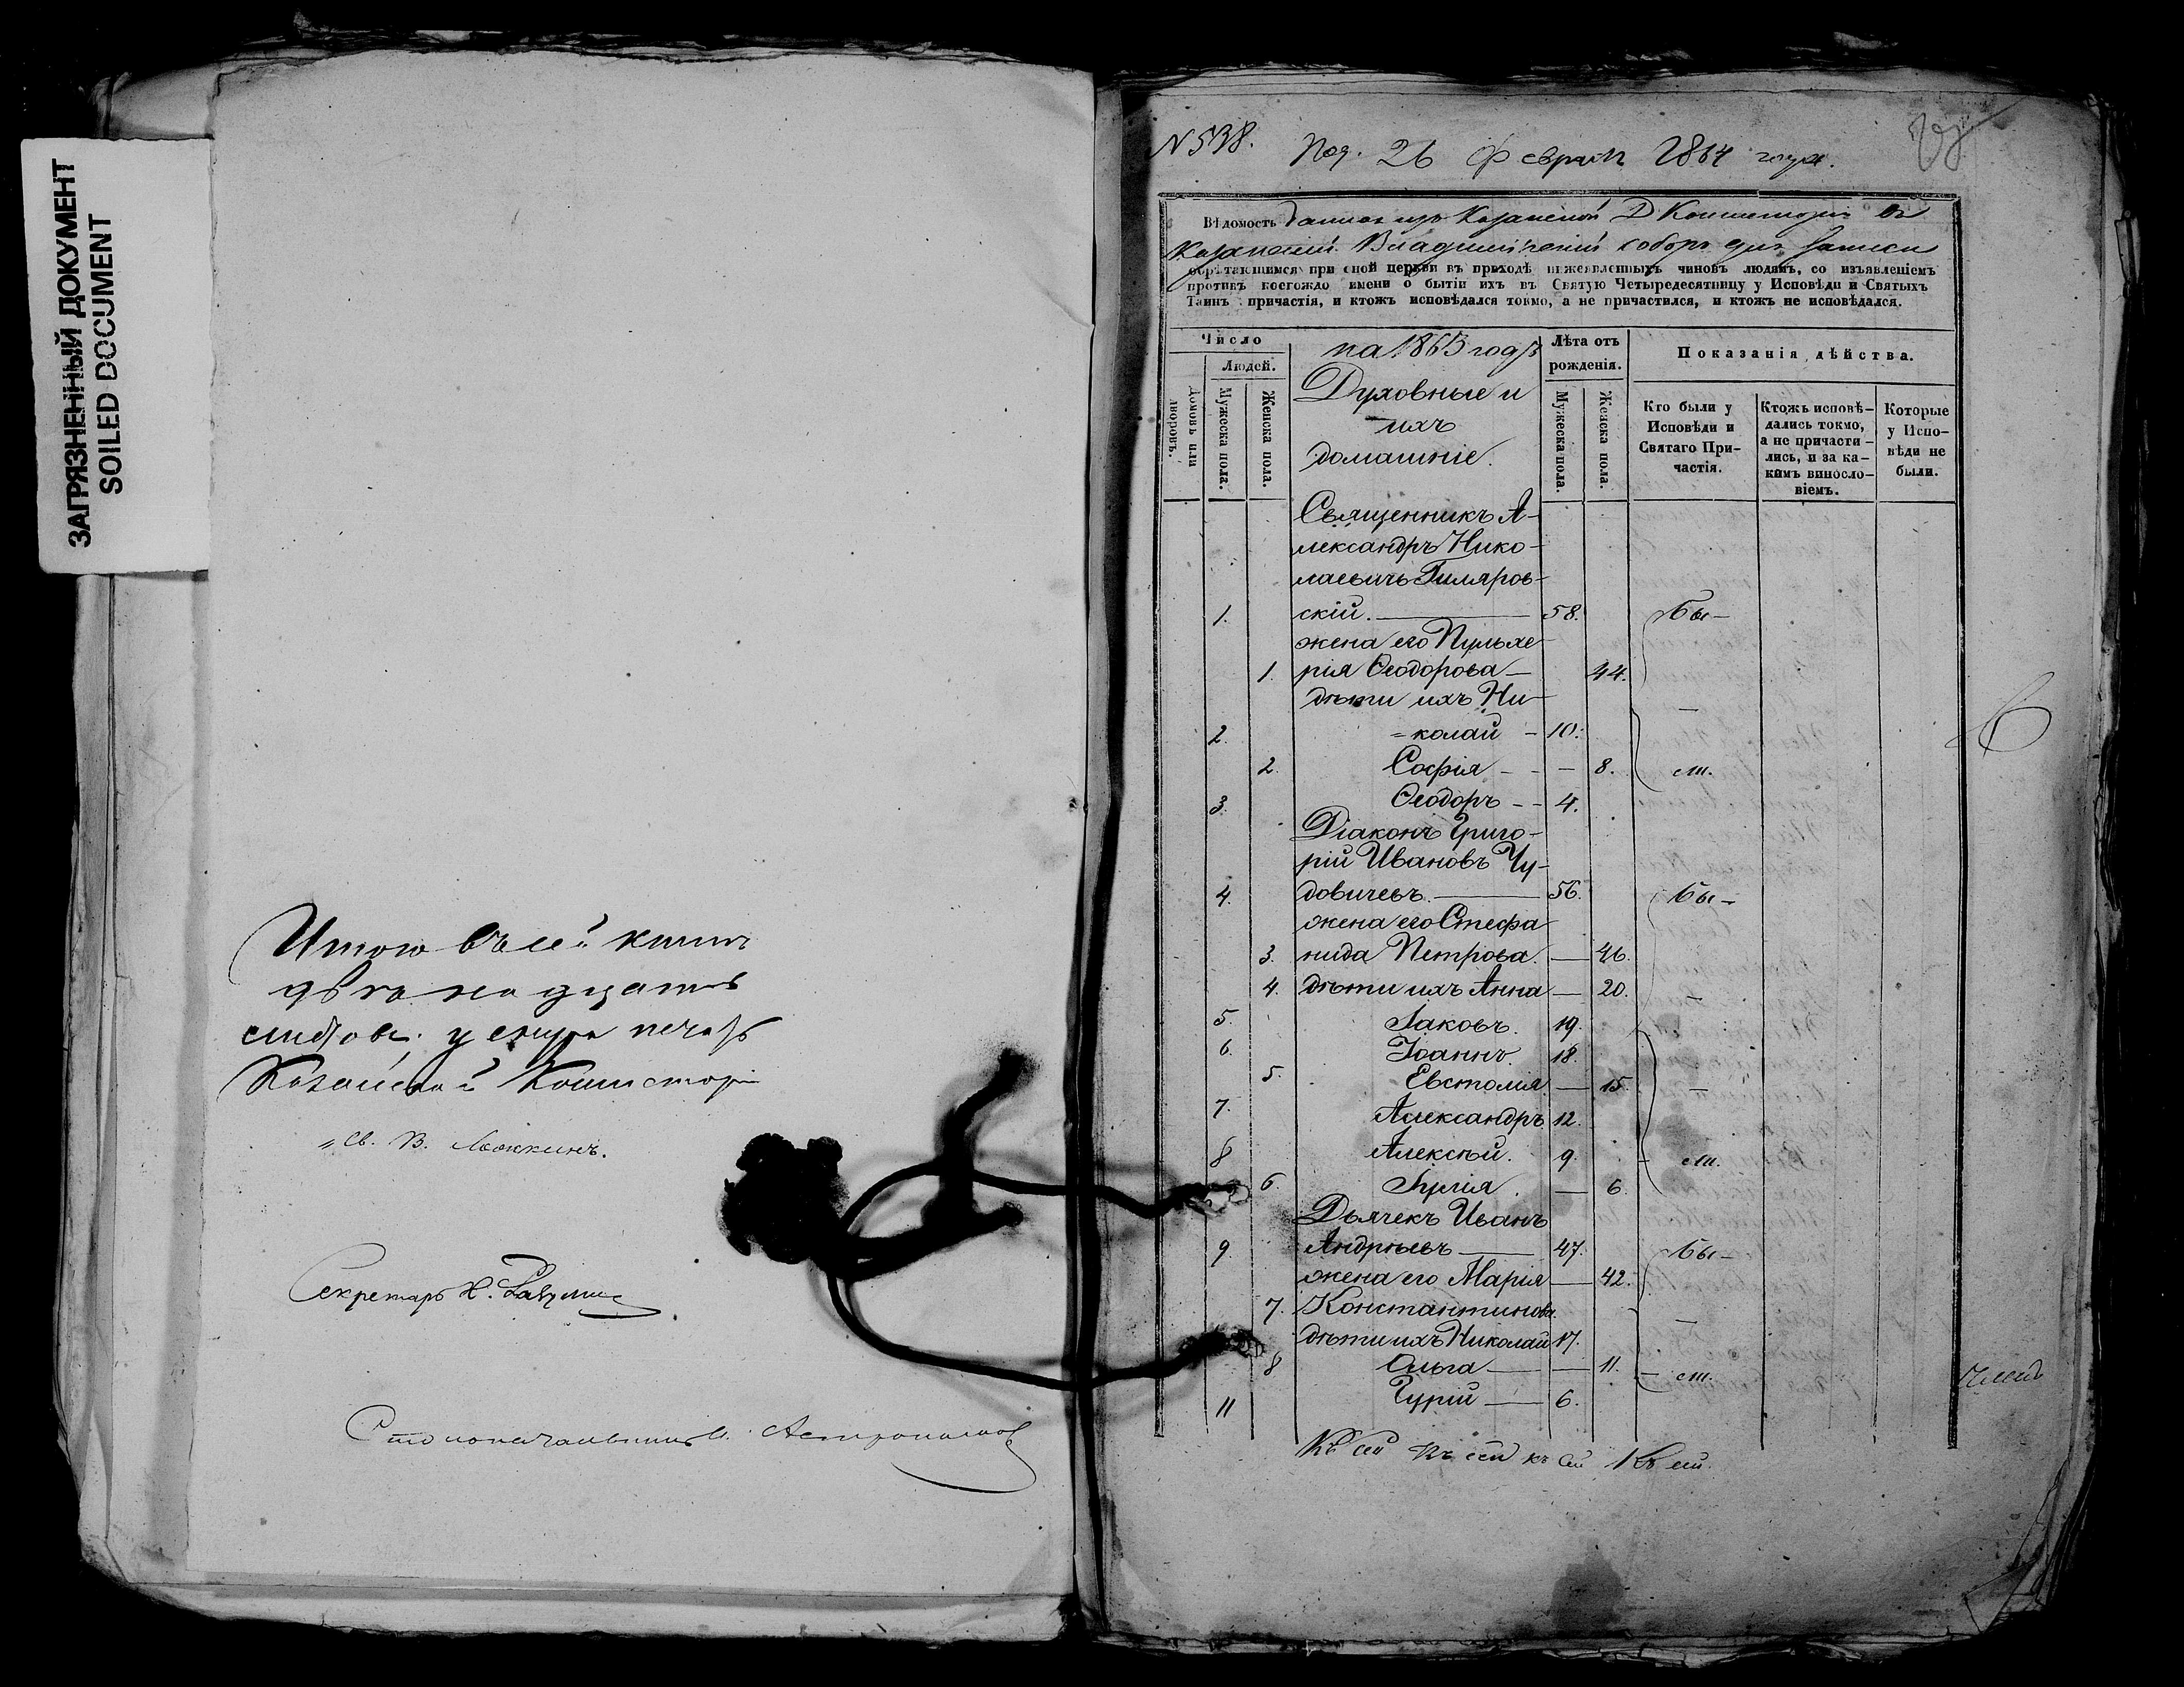 ЗАГРЯЗНЕННЫЙ ДОКУМЕНТ
SOILED DOCUMENT
Итого въ сей книгѣ
двѣнадцать
листовъ. у снура печать
Казанской Консисторіи
Секретарь
Столоначальникъ
N 538.
Пол. 26 Февраля 1864 года.
Вѣдомость данная изъ Казанской Д Консисторіи въ
Казанскій Владимірскій соборъ для записи
обрѣтающимся при оной церкви въ приходѣ нижеявленныхъ чиновъ людямъ, со изъявленіемъ
противъ коегождо имени о бытіи ихъ въ Святую Четыредесятницу у Исповѣди и Святыхъ
Таинъ причастія, и ктожъ исповѣдался токмо, а не причастился, и ктожъ не исповѣдался.
Число
Людей.
Домовъ или дворовъ.
Мужеска пола.
Женска пола.
на 1865 годъ
Духовные и
ихъ
домашніе.
Лѣта отъ
рожденія.
Мужеска пола.
Женска пола.
Показанія дѣйства.
Кто были у
Исповѣди и
Святаго При-
частія.
Ктожъ исповѣ-
дались токмо,
а не причасти-
лись, и за ка-
кимъ виносло-
віемъ.
Которые
у Испо-
вѣди не
были.
Священникъ А-
лександръ Нико-
лаевичъ Гиляров-
1. скій. 58. Бы-
жена его Пульхе-
1. рія Ѳеодорова 44.
дѣти ихъ Ни-
2. =колай - 10.
2. Софія - - - 8. ли.
3. Ѳеодоръ - - 4.
Діаконъ Григо-
рій Ивановъ Чу-
4. довичевъ. 56. Бы-
жена его Стефа
3. нида Петрова. 46.
4. дѣти ихъ Анна 20.
5. Іаковъ. 19.
6. Іоаннъ 18.
5. Евстолія 15.
7. Александръ 12.
8 Алексѣй. 9. ли.
6. Юлія. 6.
Дьячекъ Иванъ
9. Андреевъ 47. Бы-
жена его Марія 42.
7. Константинова.
дѣти ихъ Николай 17.
8 Ольга 11. ли.
11 Гурій 6.
Къ сей къ сей къ сей Къ сей